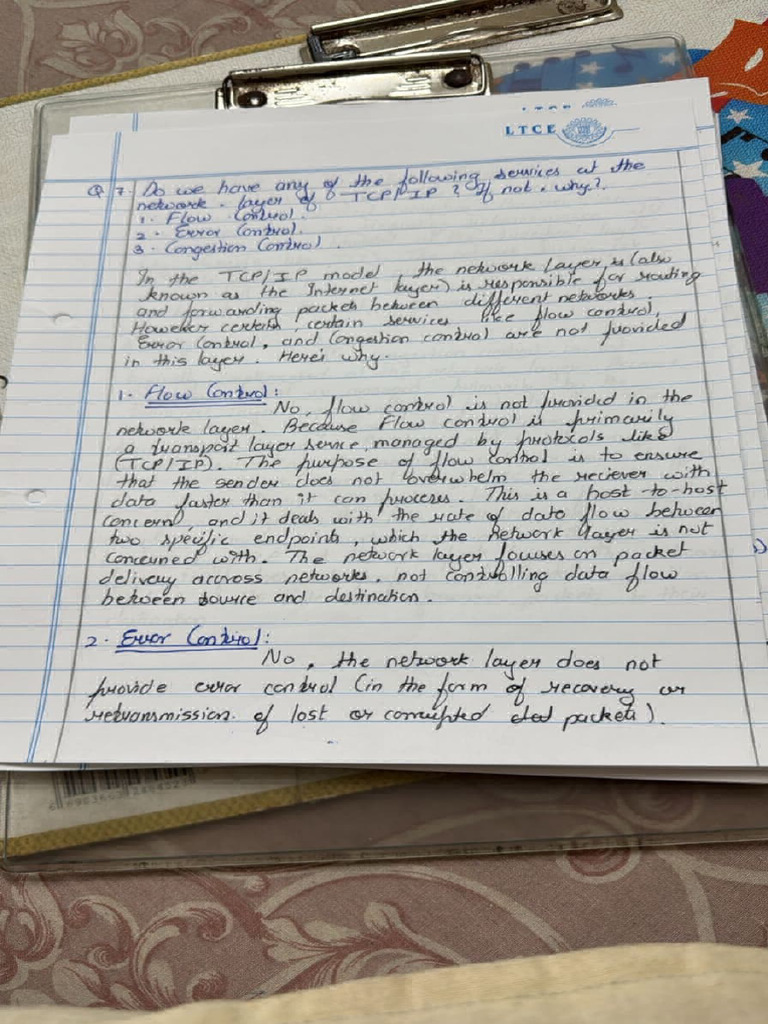 LTCE
Q 7. Do we have any of the following services at the
network. layer of TCP/IP? If not. why?
1. Flow Control.
2. Error Control.
3. Congestion Control.
In the TCP/IP model, the network layer is (also
known as the Internet layer) is responsible for routing
and forwarding packets between different networks.
However certain, certain services like flow control,
Error Control, and Congestion control are not provided
in this layer. Here's why.
1. Flow Control:
No, flow control is not provided in the
network layer. Because Flow control is primarily
a transport layer service, managed by protocols like
(TCP/IP). The purpose of flow control is to ensure
that the sender does not overwhelm the reciever with
data faster than it can process. This is a host-to-host
concern, and it deals with the rate of data flow between
two specific endpoints, which the Network layer is not
concerned with. The network layer focuses on packet
delivery accross networks, not controlling data flow
between source and destination.
2. Error Control:
No, the network layer does not
provide error control (in the form of recovery or
retransmission of lost or corrupted packets).